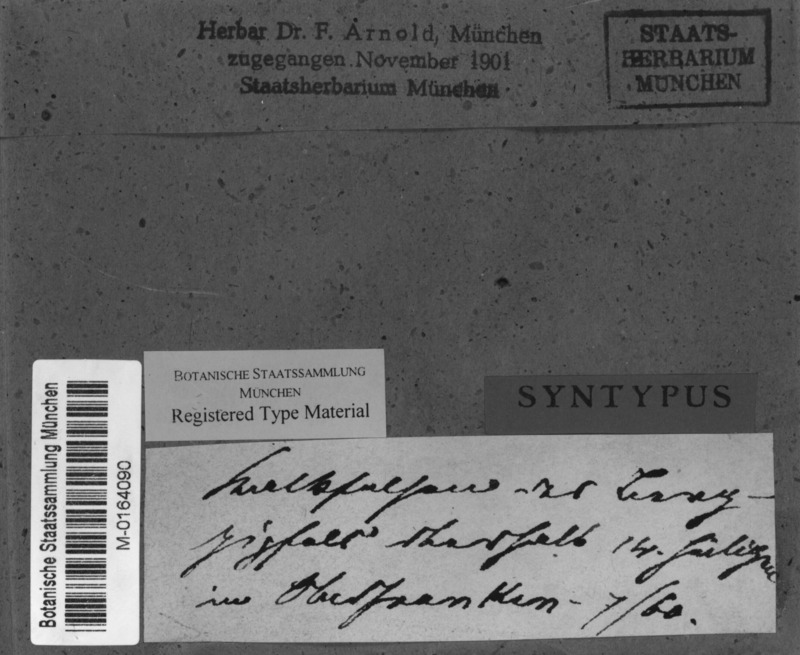 Herbar Dr. F. Arnold, München
zugegangen November 1901
Staatsherbarium München
STAATS-
HERBARIUM
MÜNCHEN
BOTANISCHE STAATSSAMMLUNG
MÜNCHEN
Registered Type Material
SYNTYPUS
Botanische Staatssammlung München
M-0164090
Kalkfelsen des Berg-
gipfels oberhalb
in Oberfranken - 7/60.